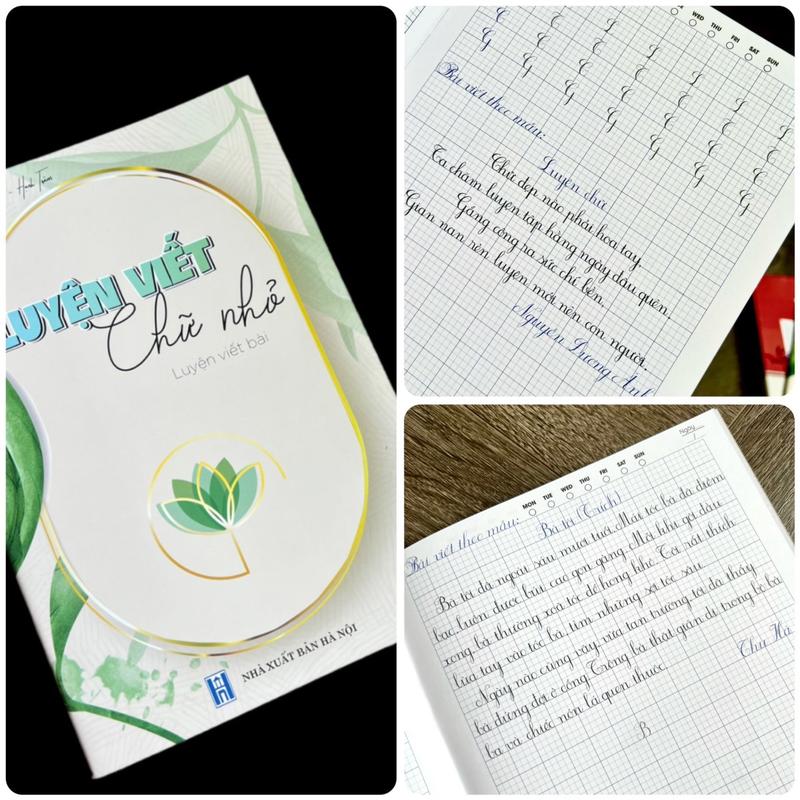 Hạnh Trâm
LUYỆN VIẾT
Chữ nhỏ
Luyện viết bài
NHÀ XUẤT BẢN HÀ NỘI
WED THU FRI SAT SUN
Bài viết theo mẫu:
Luyện chữ
Chữ đẹp nào phải hoa tay
Ta chăm luyện tập hằng ngày đâu quên.
Gắng công ra sức chí bền,
Gian nan rèn luyện mới nên con người.
Nguyễn Dương Anh
Ngày
MON TUE WED THU FRI SAT SUN
Bài viết theo mẫu:
Bà tôi (Trích)
Bà tôi đã ngoài sáu mươi tuổi. Mái tóc bà đã điểm
bạc, luôn được búi cao gọn gàng. Mỗi khi gội đầu
xong, bà thường xoã tóc để hong khô. Tôi rất thích
lùa tay vào tóc bà, tìm những sợi tóc sâu.
Ngày nào cũng vậy, vừa tan trường tôi đã thấy
bà đứng đợi ở cổng. Trông bà thật giản dị trong bộ bà
ba và chiếc nón lá quen thuộc.
Thu Hà
B